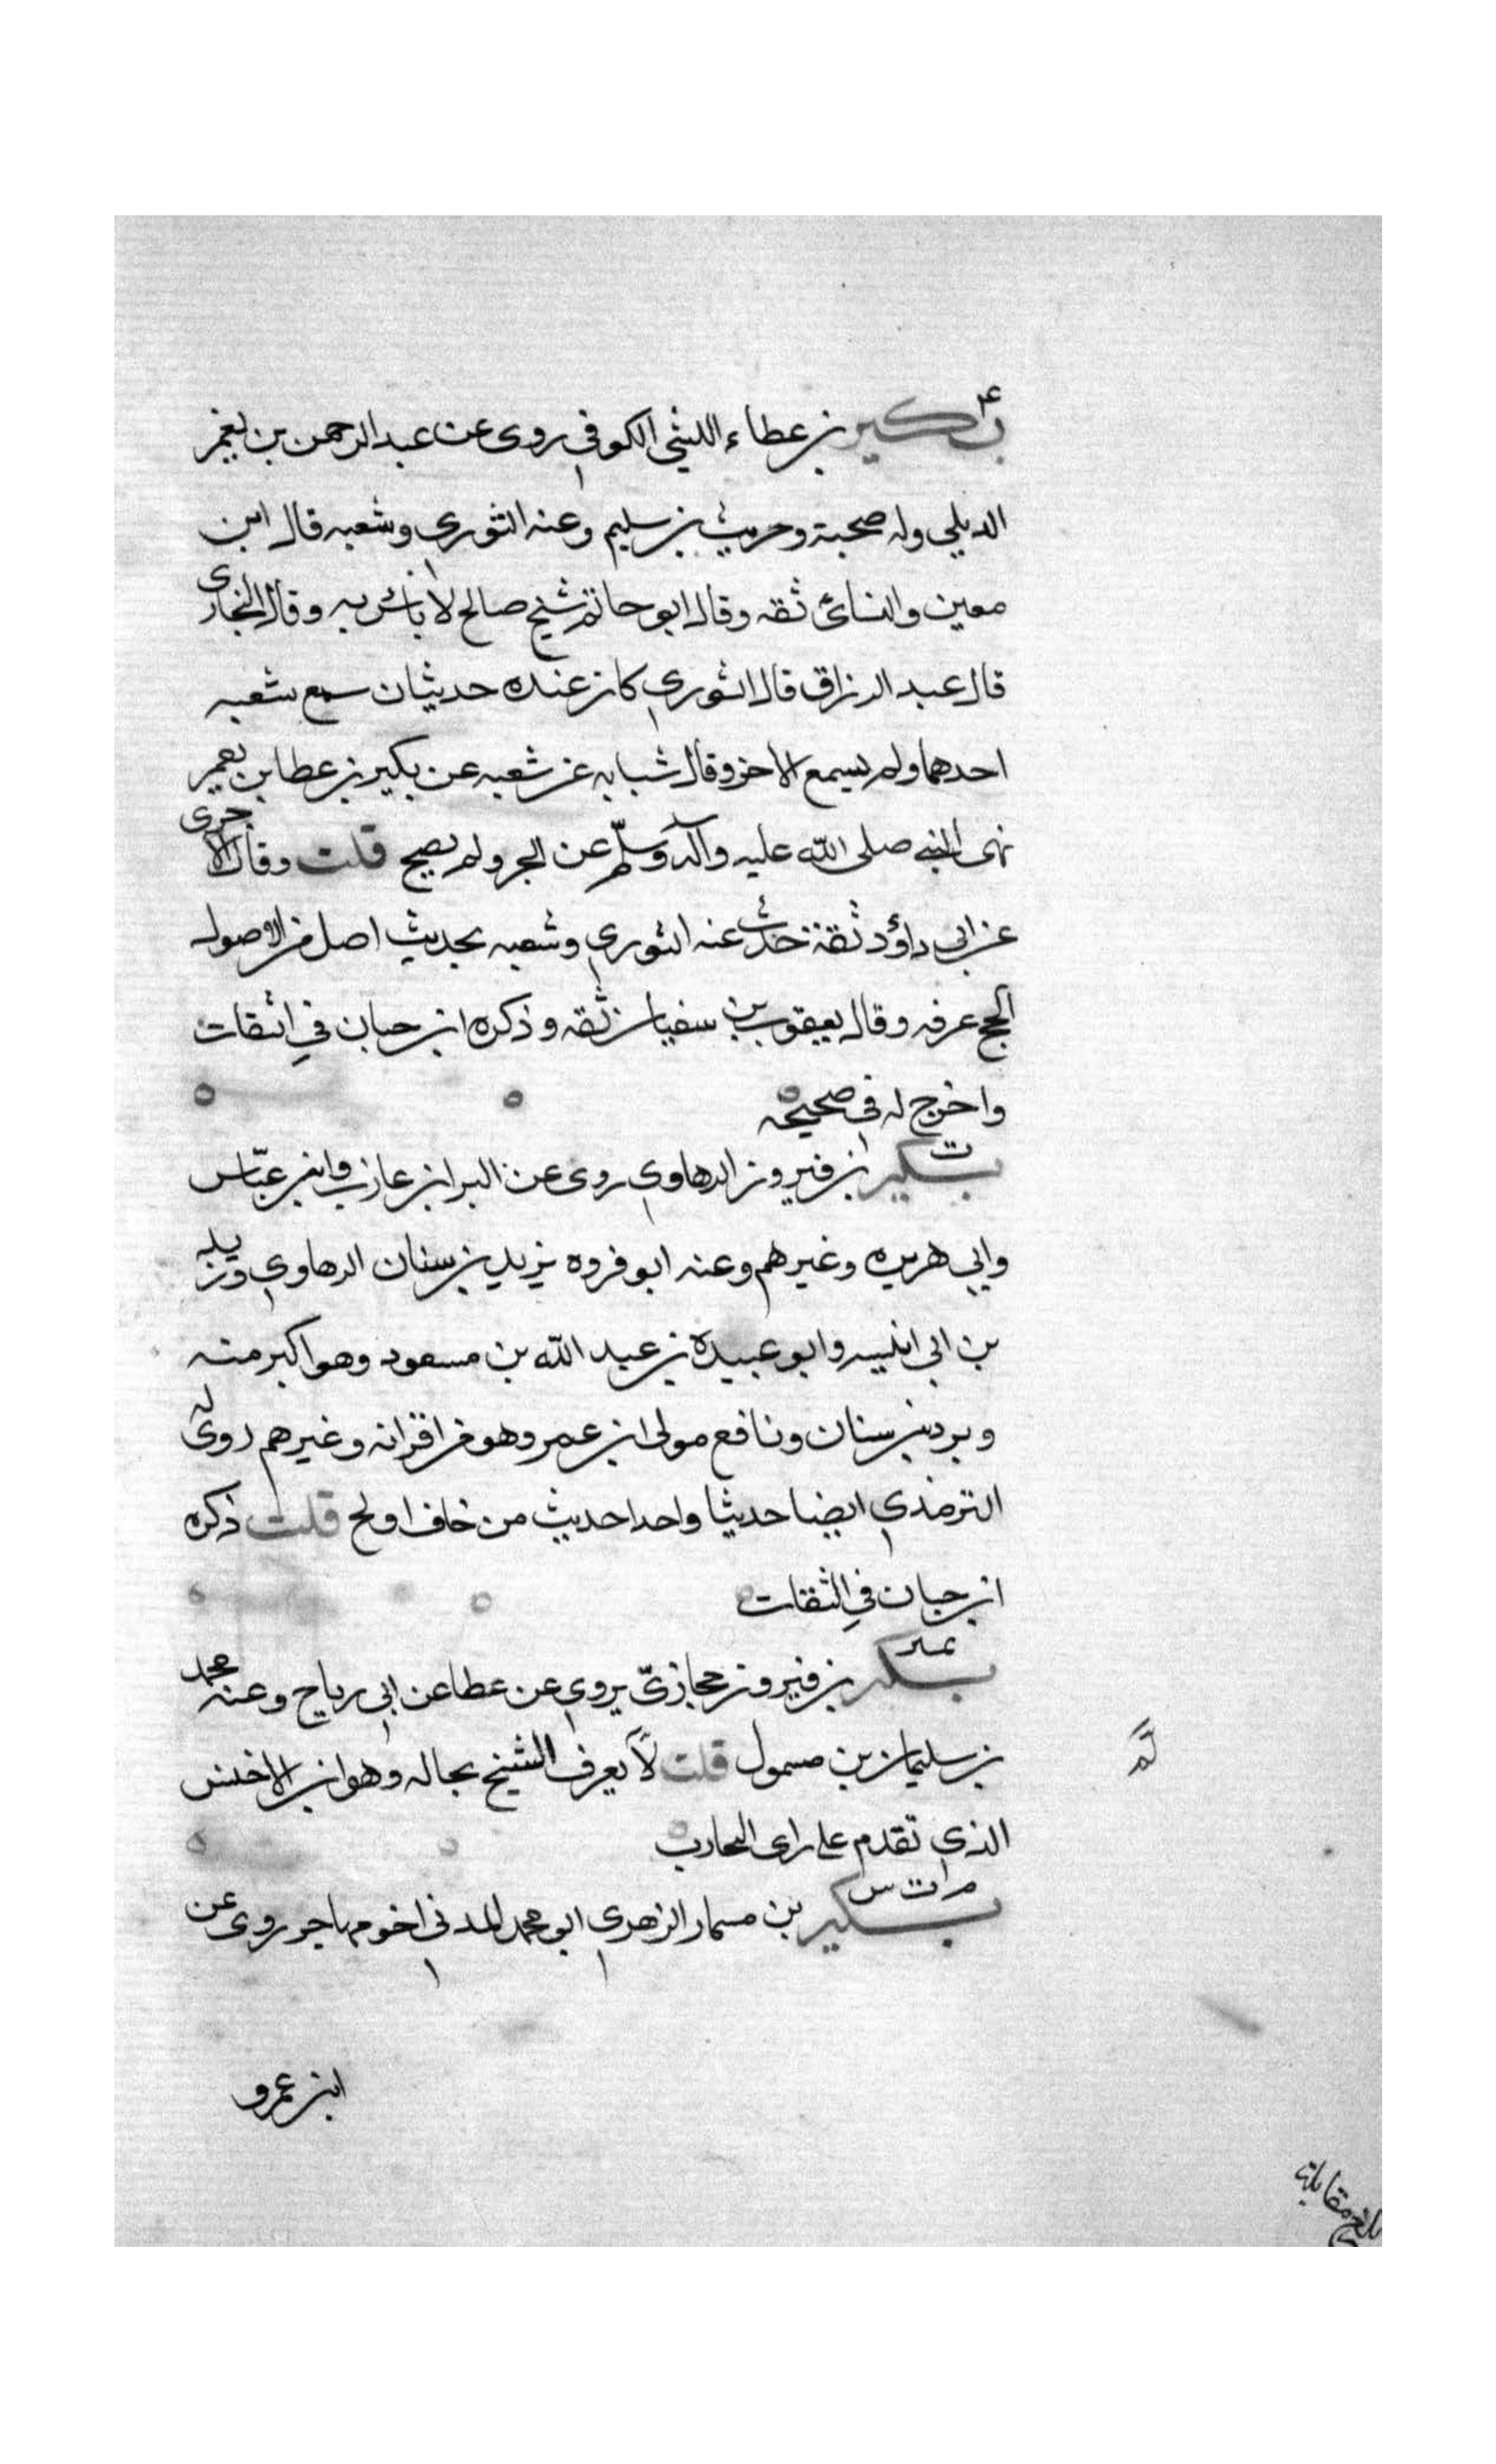 ٤
بكير بن عطاء الليثي الكوفي روى عن عبد الرحمن بن يعمر
الديلي وله صحبة وحريث بن سليم وعنه الثوري وشعبه قال ابن
معين والنسائ ثقه وقال ابو حاتم شيخ صالح لا باس به وقال البخارى
قال عبد الرزاق قال الثوري كان عنده حديثان سمع شعبه
احدهما ولم يسمع الاخر وقال شبابه عن شعبه عن بكير بن عطا بن يعمر
نهى النبي صلى الله عليه وآله وسلّم عن الجر ولم يصح قلت وقال الاجرى
عن ابي داؤد ثقة حدث عنه الثوري وشعبه بحديث اصل من الاصول
الحج عرفه وقال يعقوب بن سفيان ثقه وذكره ابن حبان في الثقات
واخرج له في صحيحه
ت
بكير ابن فيروز الرهاوي روى عن البرا بن عازب وابن عبّاس
وابي هريره وغيرهم وعنه ابو فروه يزيد بن سنان الرهاوي وزيد
بن ابي انيسه وابو عبيدة بن عبد الله بن مسعود وهو اكبر منه
وبرد بن سنان ونافع مولى ابن عمر وهو من اقرانه وغيرهم روى له
الترمذي ايضا حديثا واحدا حديث من خاف اولج قلت ذكره
ابن حبان في الثقات
تمييز
بكير بن فيروز حجازيّ يروي عن عطا عن ابي رباح وعنه محمد
بن سليمان بن مسمول قلت لا يعرف الشيخ بحاله وهو ابن الاخنس
الذي تقدم على راى
م ت س
بكير بن مسمار الزهري ابو محمد المدني اخو مهاجر روى عن
ابن عمرو
بلغ مقابلة